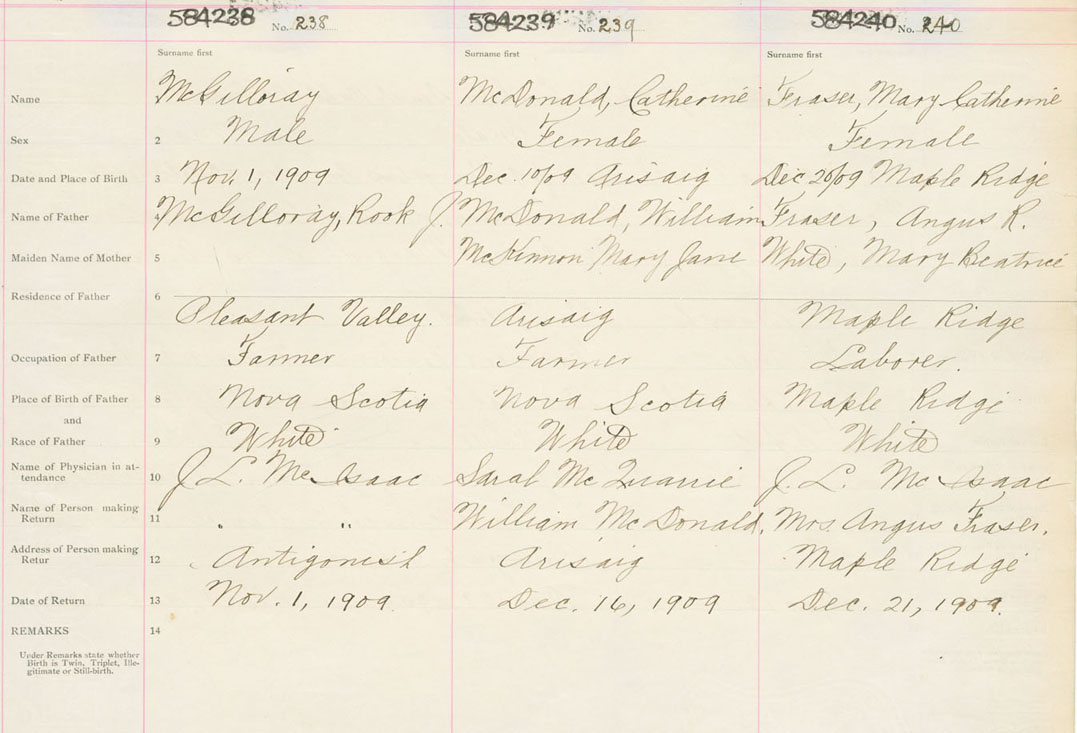 584238 No. 238 584239 No. 239 584240 No. 240
Surname first Surname first Surname first
Name McGilloray McDonald, Catherine Fraser, Mary Catherine
Sex 2 Male Female Female
Date and Place of Birth 3 Nov. 1, 1909 Dec. 10/09 Arisaig Dec 20/09 Maple Ridge
Name of Father 4 McGilloray, Rook J. McDonald, William Fraser, Angus R.
Maiden Name of Mother 5 McKinnon Mary Jane White, Mary Beatrice
Residence of Father 6
Pleasant Valley. Arisaig Maple Ridge
Occupation of Father 7 Farmer Farmer Laborer.
Place of Birth of Father 8 Nova Scotia Nova Scotia Maple Ridge
and
Race of Father 9 White White White
Name of Physician in at-
tendance 10 J. L. McIsaac Sarah McQuarrie J. L. McIsaac
Name of Person making
Return 11 " " William McDonald. Mrs Angus Fraser.
Address of Person making
Retur 12 Antigonish Arisaig Maple Ridge
Date of Return 13 Nov. 1, 1909. Dec. 16, 1909 Dec. 21, 1909.
REMARKS 14
Under Remarks state whether
Birth is Twin, Triplet, Ille-
gitimate or Still-birth.